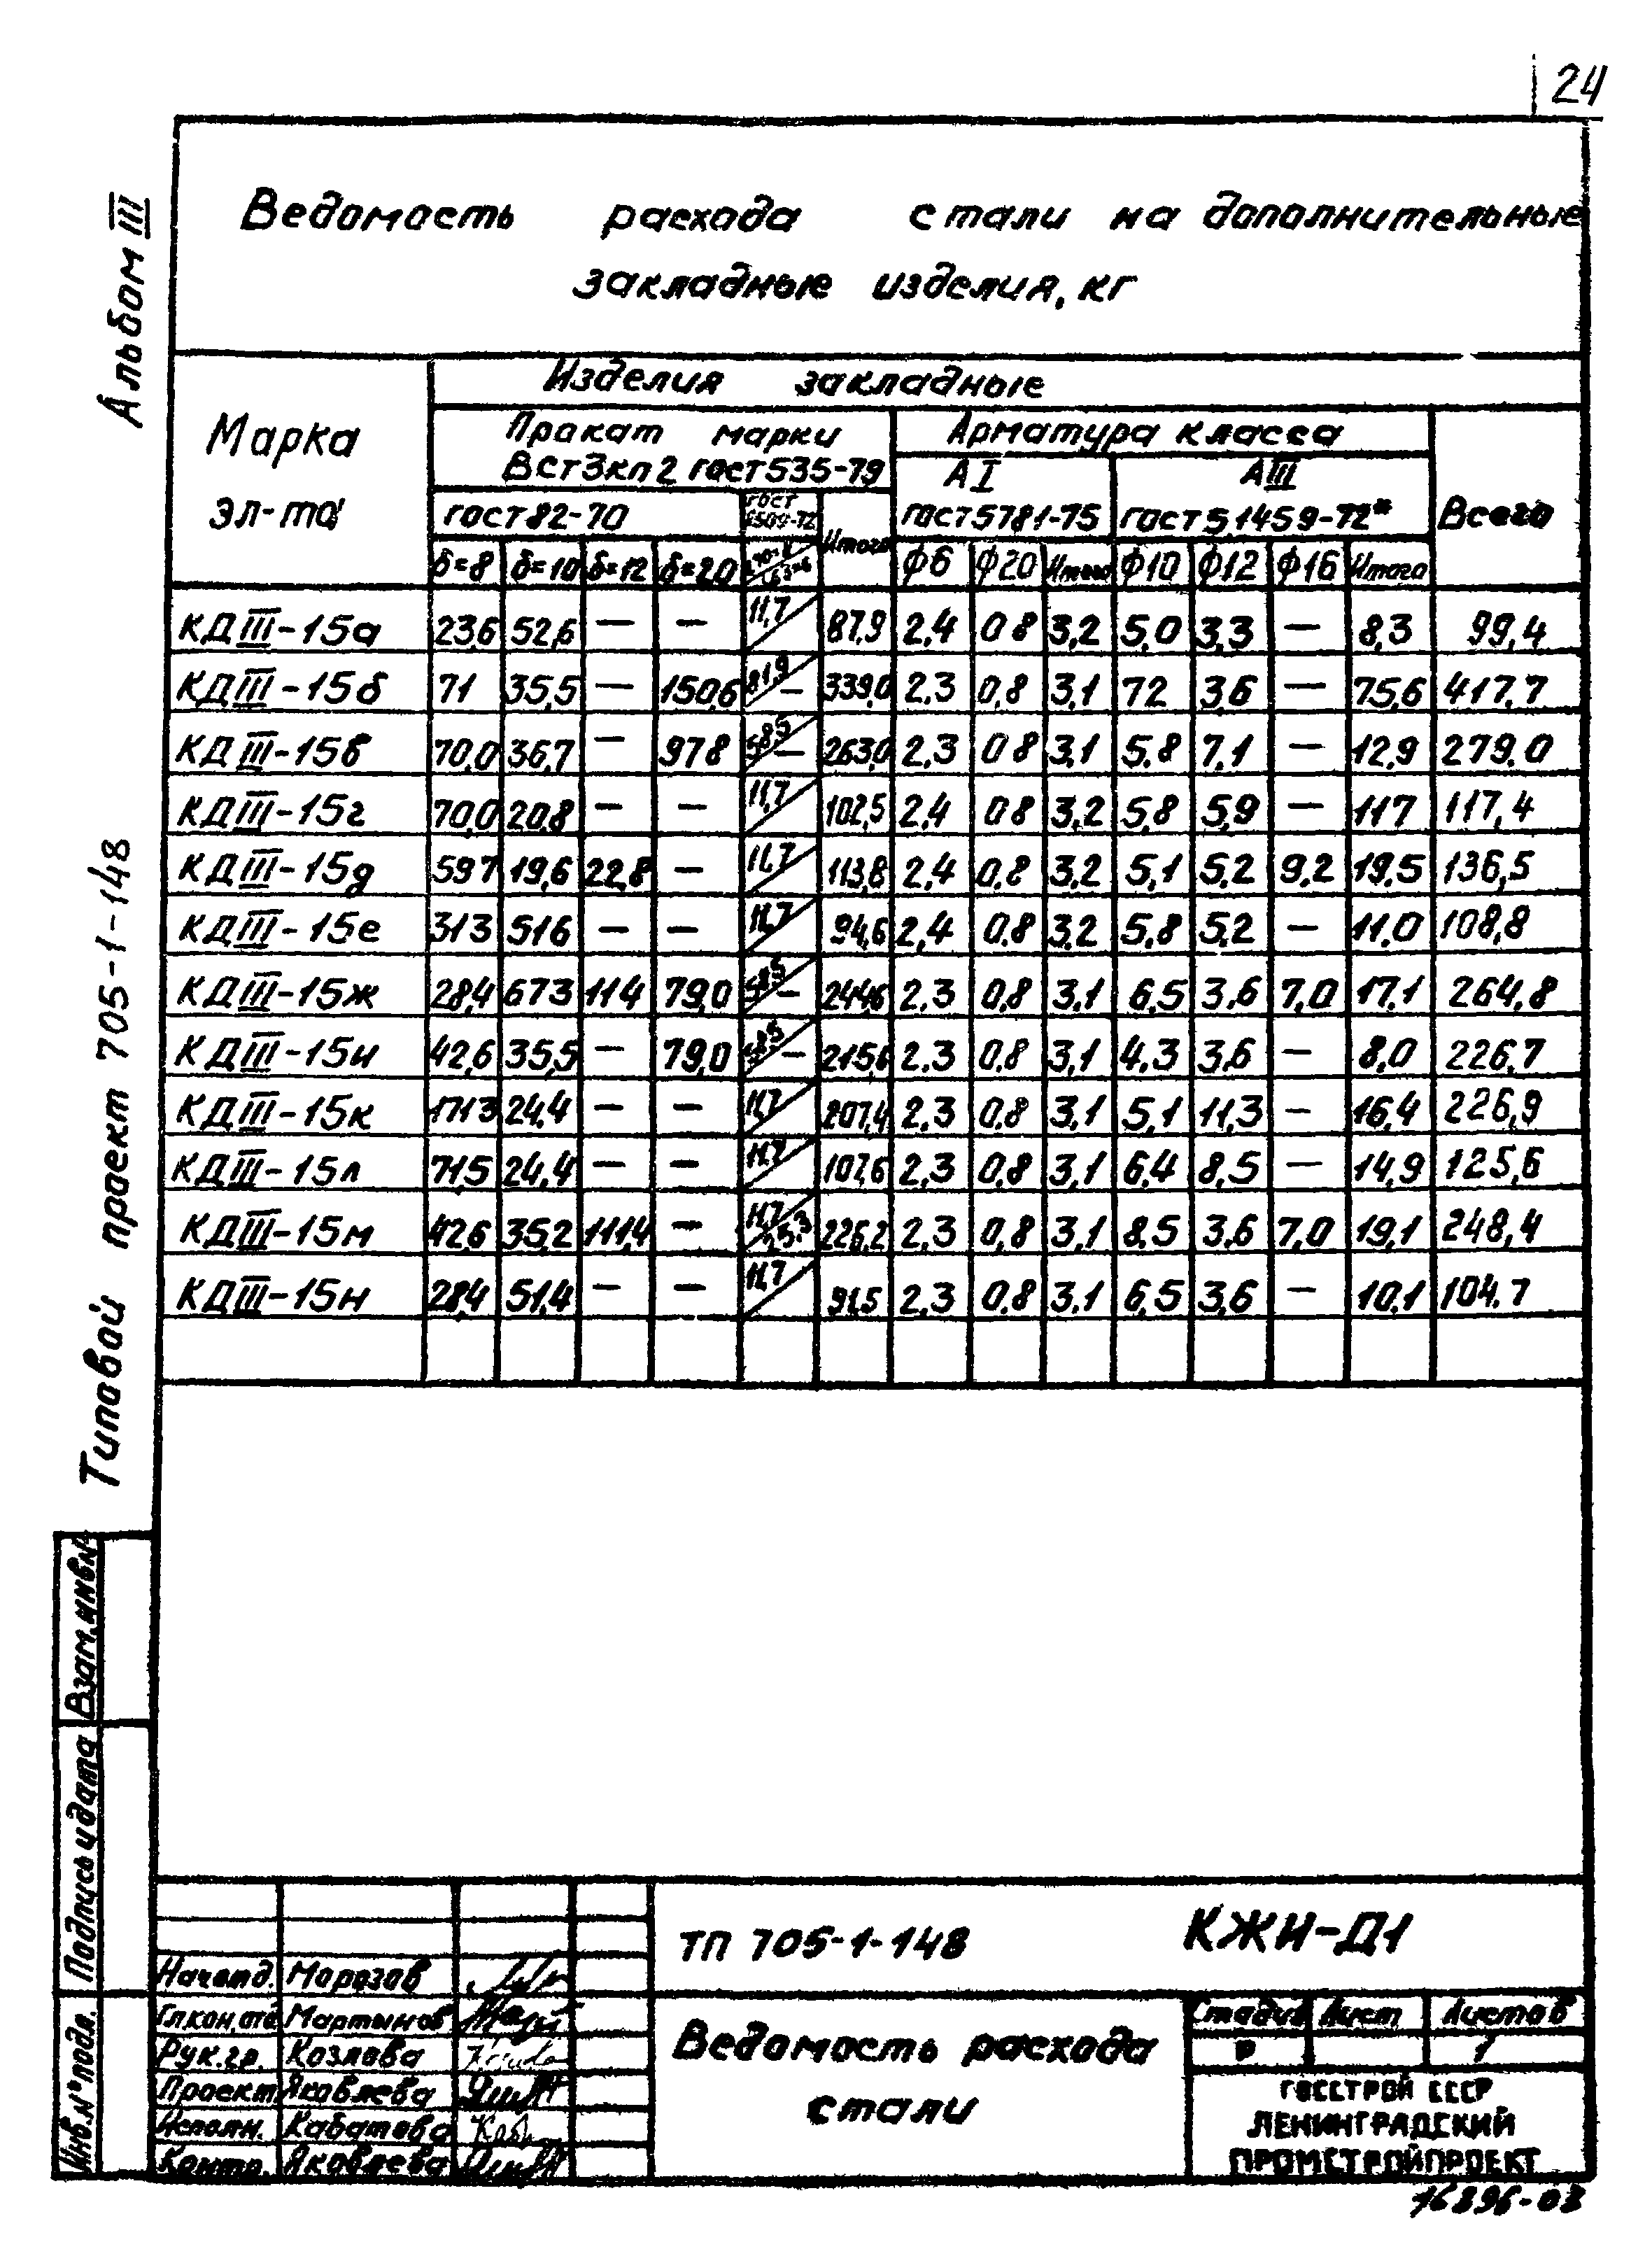 24
Альбом III
Типовой проект 705-1-148
Ведомость расхода стали на дополнительные
закладные изделия, кг
Марка эл-та
Изделия закладные
Прокат марки
ВСт3кп2 гост 535-79
Арматура класса
АI
АIII
Всего
гост 82-70
гост 8509-72
Итого
гост 5781-75
гост 5.1459-72*
δ=8 δ=10 δ=12 δ=20 Ф6 Ф20 Итого Ф10 Ф12 Ф16 Итого
КДIII-15а 23,6 52,6 — — 11,7 87,9 2,4 0 8 3,2 5,0 3,3 — 8,3 99,4
КДIII-15б 71 35,5 — 150,6 81,9 — 339,0 2,3 0,8 3,1 72 3,6 — 75,6 417,7
КДIII-15в 70,0 36,7 — 97 8 58,5 — 263,0 2,3 0 8 3,1 5,8 7,1 — 12,9 279,0
КДIII-15г 70,0 20,8 — — 11,7 102,5 2,4 0 8 3,2 5,8 5,9 — 11 7 117,4
КДIII-15д 59 7 19,6 22,8 — 11,7 113,8 2,4 0,8 3,2 5,1 5,2 9,2 19,5 136,5
КДIII-15е 31 3 51 6 — — 11,7 94,6 2,4 0,8 3,2 5,8 5,2 — 11,0 108,8
КДIII-15ж 28,4 67 3 11 4 79,0 58,5 — 244,6 2,3 0,8 3,1 6,5 3,6 7,0 17,1 264,8
КДIII-15и 42,6 35,5 — 79,0 58,5 — 215 6 2,3 0,8 3,1 4,3 3,6 — 8,0 226,7
КДIII-15к 171 3 24,4 — — 11,7 207,4 2,3 0,8 3,1 5,1 11,3 — 16,4 226,9
КДIII-15л 71,5 24,4 — — 11,7 107,6 2,3 0,8 3,1 6,4 8,5 — 14,9 125,6
КДIII-15м 42,6 35,2 111,4 — 11,7 25,3 226,2 2,3 0,8 3,1 8,5 3,6 7,0 19,1 248,4
КДIII-15н 28,4 51,4 — — 11,7 91,5 2,3 0,8 3,1 6,5 3,6 — 10,1 104,7
Взам.инв.№
Подпись и дата
Инв.№ подл.
ТП 705-1-148 КЖИ-Д1
Нач.отд. Морозов
Гл.кон.отд Мартынов
Рук.гр. Козлова
Проект. Яковлева
Исполн. Кабатова
Контр. Яковлева
Ведомость расхода
стали
Стадия Лист Листов
Р 1
ГОССТРОЙ СССР
ЛЕНИНГРАДСКИЙ
ПРОМСТРОЙПРОЕКТ
16896-03